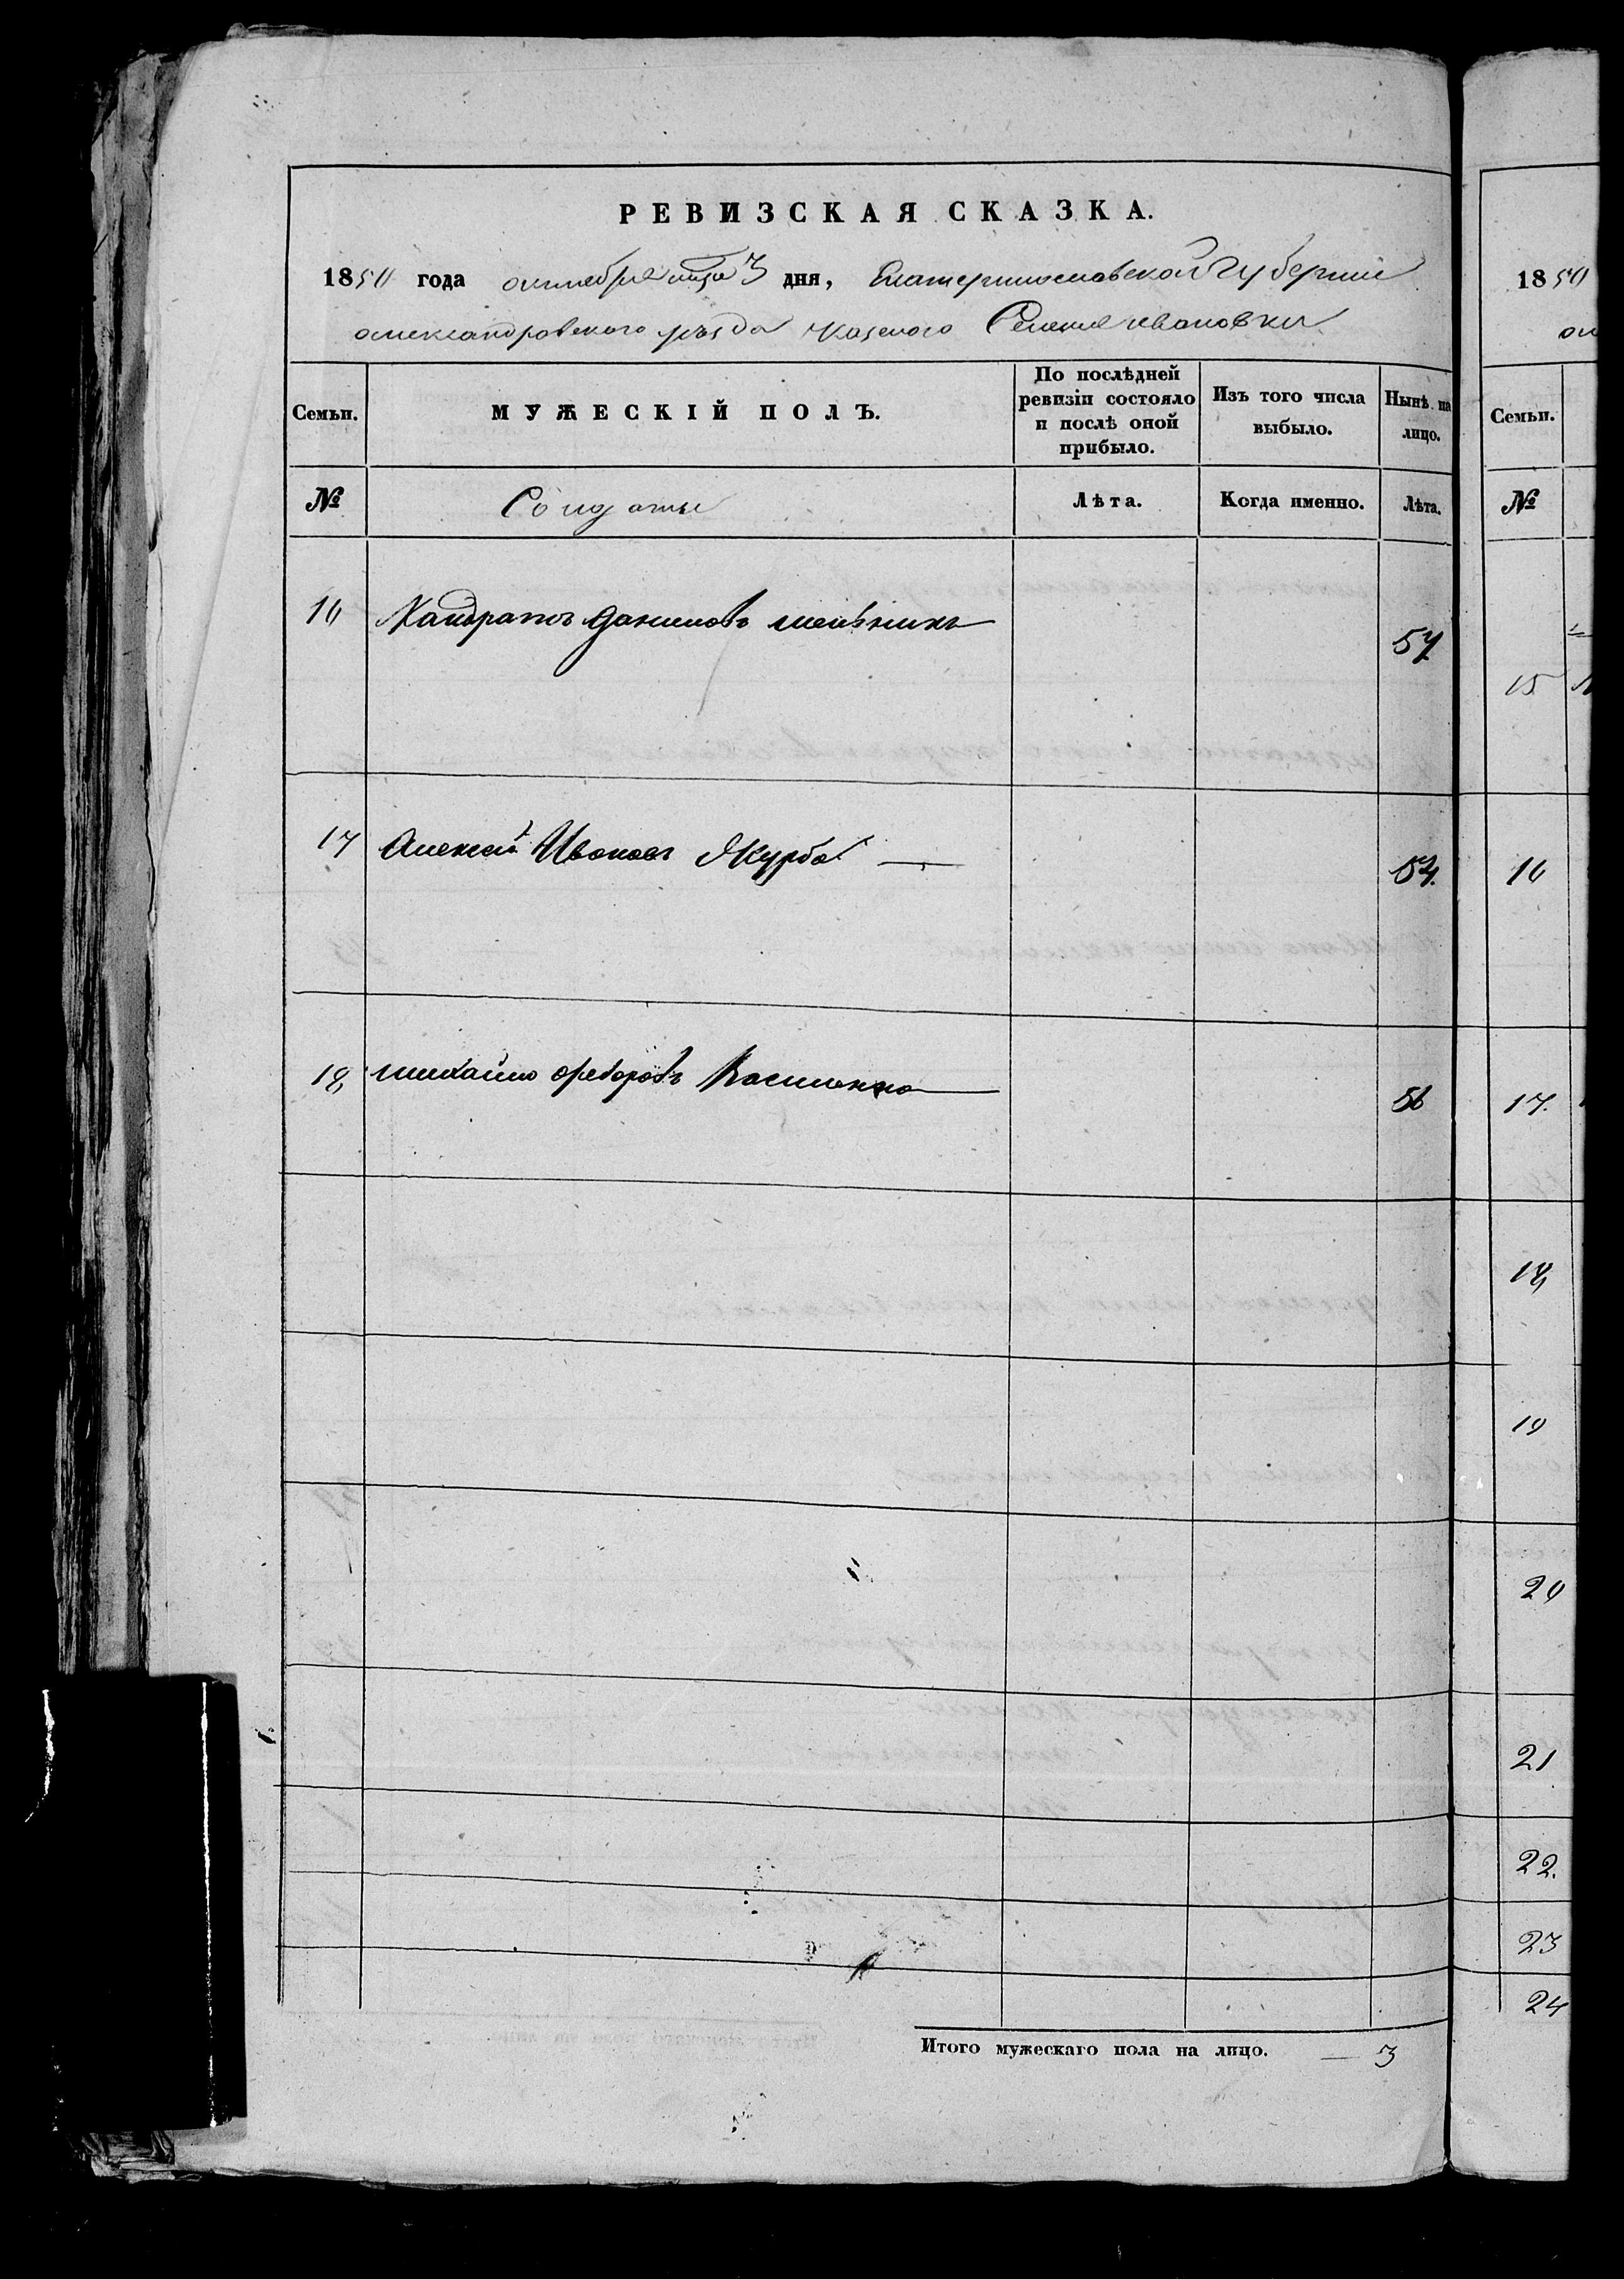 РЕВИЗСКАЯ СКАЗКА.
1850 года октября мца 3 дня, Екатеринославской Губернии
александровского уезда казеного Селения ивановки
Семьи. МУЖЕСКІЙ ПОЛЪ. По послѣдней ревизіи состояло и послѣ оной прибыло. Изъ того числа выбыло. Нынѣ на лицо.
№ Солдаты Лѣта. Когда именно. Лѣта.
16 Кандратъ Даниловъ мельникъ 57
17 Алексей Ивановъ Журба 54.
18, михайло Федоровъ Василенко 56
Итого мужескаго пола на лицо. — 3
1850
Семьи.
№
15
16
17.
18,
19
20
21
22.
23
24